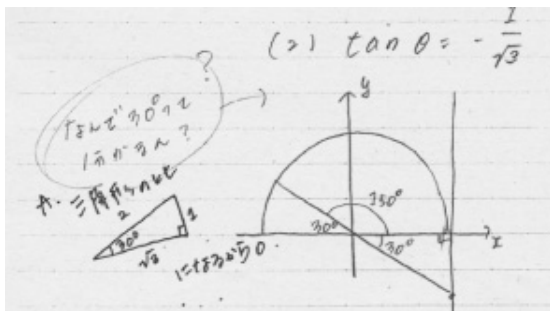 (2) tan θ = - 1/√3
?
なんで30°って
分かるん?
A. 三角形の比が
2
1
30°
√3
になるから。
y
150°
30°
30°
x